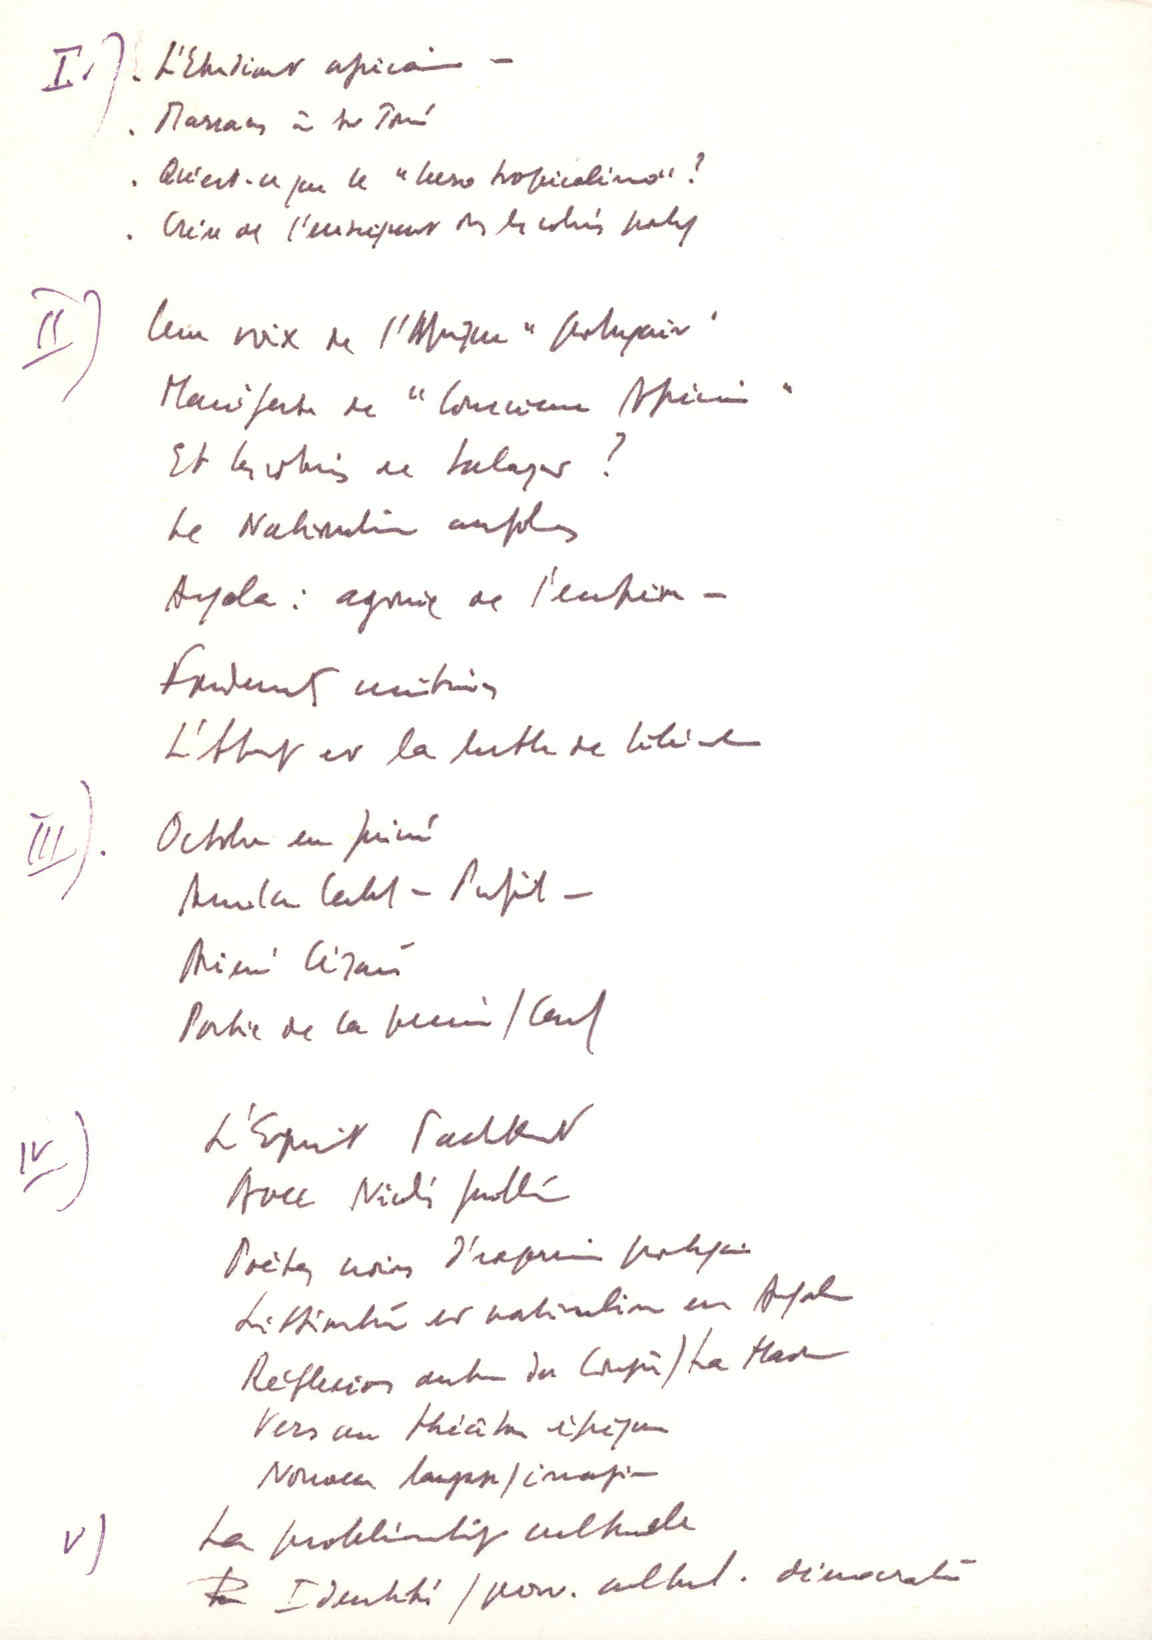 I.) . L'Etudiant africain -
. Massacres à Sao Tomé
. Qu'est-ce que le "luso tropicalismo" ?
. Crise de l'enseignement ds les colonies portug
II) Une voix de l'Afrique "portugaise"
Manifeste de "Conscience Africaine"
Et les colonies de Salazar ?
Le Nationalisme angolais
Angola : agonie de l'empire -
Fondements unitaires
L'Afrique et la lutte de libération
III) . Octobre en
Amilcar Cabral - Portrait -
Aimé Césaire
Poésie de la guerre / Cont
IV) L'Esprit Tachkent
Avec Nicolás Guillén
Poètes noirs d'expression portugaise
Littérature et nationalisme en Angola
Réflexions autour du Congrès / La Havane
Vers un théâtre épique
Nouveau langage / imaginaire
V) La problématique culturelle
Identité / pouv. cultul. démocratie